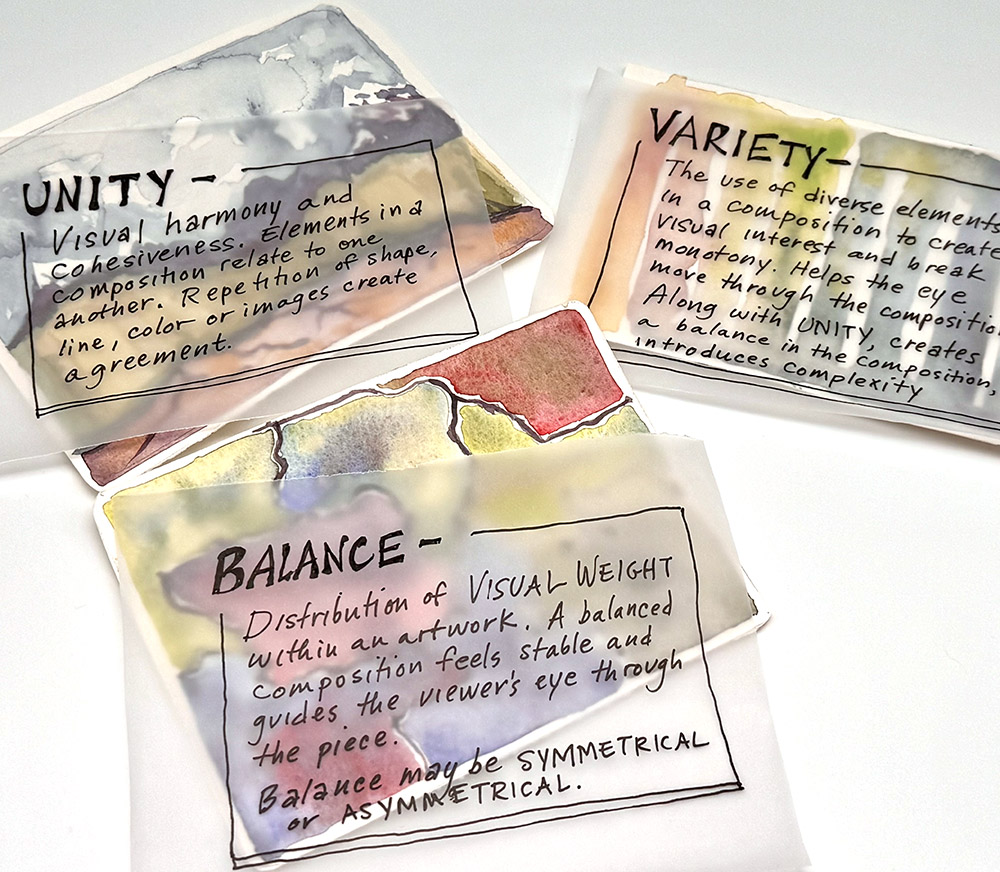 UNITY -
Visual harmony and
cohesiveness. Elements in a
composition relate to one
another. Repetition of shape,
line, color or images create
agreement.
VARIETY-
The use of diverse elements
in a composition to create
visual interest and break
monotony. Helps the eye
move through the composition
Along with UNITY, creates
a balance in the composition,
introduces complexity
BALANCE -
Distribution of VISUAL WEIGHT
within an artwork. A balanced
composition feels stable and
guides the viewer's eye through
the piece.
Balance may be SYMMETRICAL
or ASYMMETRICAL.